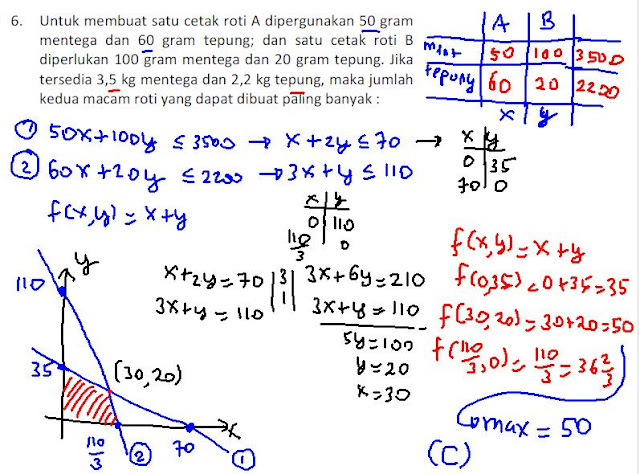 6. Untuk membuat satu cetak roti A dipergunakan 50 gram
mentega dan 60 gram tepung; dan satu cetak roti B
diperlukan 100 gram mentega dan 20 gram tepung. Jika
tersedia 3,5 kg mentega dan 2,2 kg tepung, maka jumlah
kedua macam roti yang dapat dibuat paling banyak :
A B
50 100 3500
tepung 60 20 2200
x y
① 50x+100y ≤ 3500 → x+2y ≤ 70 →
x y
0 35
70 0
② 60x+20y ≤ 2200 → 3x+y ≤ 110
x y
0 110
110/3 0
f(x,y) = x+y
y
110
35
(30,20)
x
110/3
② 70 ①
x+2y=70 |3| 3x+6y=210
3x+y=110 |1| 3x+y=110
5y=100
y=20
x=30
f(x,y) = x+y
f(0,35) = 0+35=35
f(30,20) = 30+20=50
f(110/3,0) = 110/3 = 36 2/3
max = 50
(C)